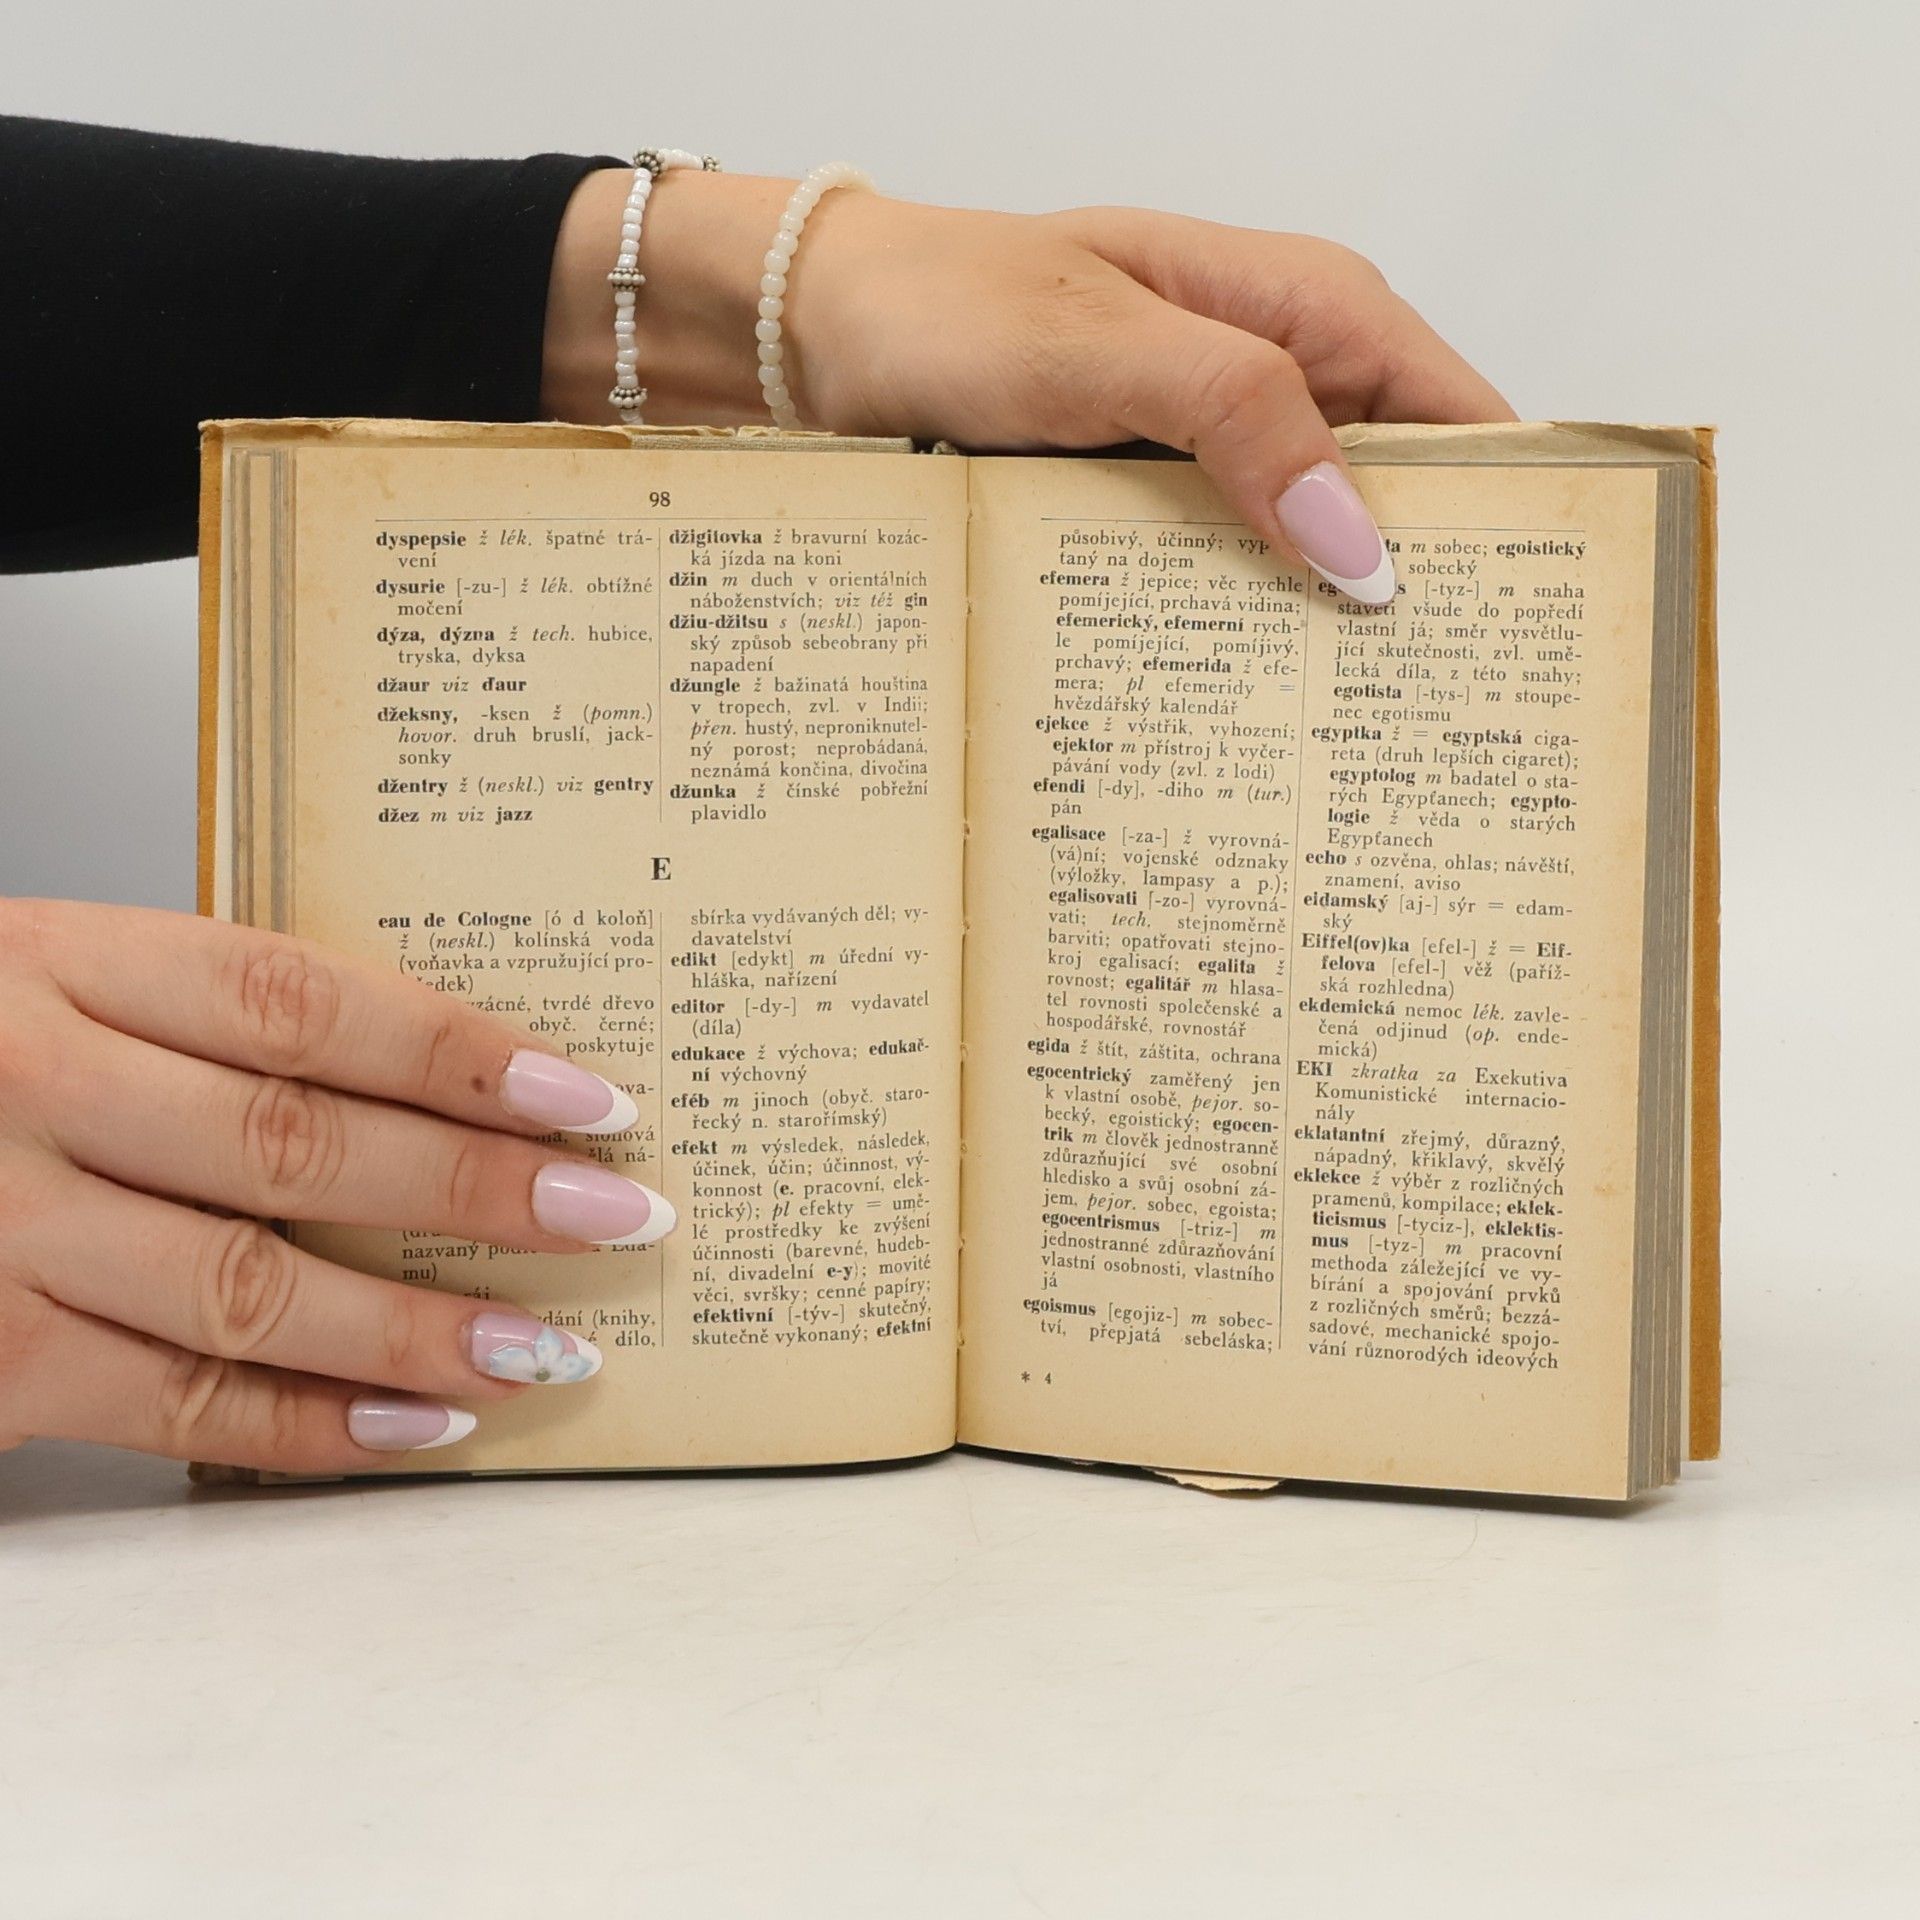 98
dyspepsie ž lék. špatné trá-
vení
dysurie [-zu-] ž lék. obtížné
močení
dýza, dýzna ž tech. hubice,
tryska, dyksa
džaur viz ďaur
džeksny, -ksen ž (pomn.)
hovor. druh bruslí, jack-
sonky
džentry ž (neskl.) viz gentry
džez m viz jazz
džigitovka ž bravurní kozác-
ká jízda na koni
džin m duch v orientálních
náboženstvích; viz též gin
džiu-džitsu s (neskl.) japon-
ský způsob sebeobrany při
napadení
džungle ž bažinatá houština
v tropech, zvl. v Indii;
přen. hustý, neproniknutel-
ný porost; neprobádaná,
neznámá končina, divočina
džunka ž čínské pobřežní
plavidlo
E
eau de Cologne [ó d koloň]
ž (neskl.) kolínská voda
(voňavka a vzpružující pro-
tvrdé dřevo
obyč. černé;
poskytuje
nazvaný
mu)
(knihy,
dílo,
sbírka vydávaných děl; vy-
davatelství
edikt [edykt] m úřední vy-
hláška, nařízení
editor [-dy-] m vydavatel
(díla)
edukace ž výchova; edukač-
ní výchovný
eféb m jinoch (obyč. staro-
řecký n. starořímský)
efekt m výsledek, následek,
účinek, účin; účinnost, vý-
konnost (e. pracovní, elek-
trický); pl efekty = umě-
lé prostředky ke zvýšení
účinnosti (barevné, hudeb-
ní, divadelní e-y); movité
věci, svršky; cenné papíry;
efektivní [-týv-] skutečný,
skutečně vykonaný; efektní
působivý, účinný;
taný na dojem
efemera ž jepice; věc rychle
pomíjející, prchavá vidina;
efemerický, efemerní rych-
le pomíjející, pomíjivý,
prchavý; efemerida ž efe-
mera; pl efemeridy =
hvězdářský kalendář
ejekce ž výstřik, vyhození;
ejektor m přístroj k vyčer-
pávání vody (zvl. z lodi)
efendi [-dy], -diho m (tur.)
pán
egalisace [-za-] ž vyrovná-
(vá)ní; vojenské odznaky
(výložky, lampasy a p.);
egalisovati [-zo-] vyrovná-
vati; tech. stejnoměrně
barviti; opatřovati stejno-
kroj egalisací; egalita ž
rovnost; egalitář m hlasa-
tel rovnosti společenské a
hospodářské, rovnostář
egida ž štít, záštita, ochrana
egocentrický zaměřený jen
k vlastní osobě, pejor. so-
becký, egoistický; egocen-
trik m člověk jednostranně
zdůrazňující své osobní
hledisko a svůj osobní zá-
jem, pejor. sobec, egoista;
egocentrismus [-triz-] m
jednostranné zdůrazňování
vlastní osobnosti, vlastního
já
egoismus [egojiz-] m sobec-
tví, přepjatá sebeláska;
* 4
m sobec; egoistický
sobecký
[-tyz-] m snaha
stavěti všude do popředí
vlastní já; směr vysvětlu-
jící skutečnosti, zvl. umě-
lecká díla, z této snahy;
egotista [-tys-] m stoupe-
nec egotismu
egyptka ž = egyptská ciga-
reta (druh lepších cigaret);
egyptolog m badatel o sta-
rých Egypťanech; egypto-
logie ž věda o starých
Egypťanech
echo s ozvěna, ohlas; návěští,
znamení, aviso
eidamský [aj-] sýr = edam-
ský
Eiffel(ov)ka [efel-] ž = Eif-
felova [efel-] věž (paříž-
ská rozhledna)
ekdemická nemoc lék. zavle-
čená odjinud (op. ende-
mická)
EKI zkratka za Exekutiva
Komunistické internacio-
nály
eklatantní zřejmý, důrazný,
nápadný, křiklavý, skvělý
eklekce ž výběr z rozličných
pramenů, kompilace; eklek-
ticismus [-tyciz-], eklektis-
mus [-tyz-] m pracovní
methoda záležející ve vy-
bírání a spojování prvků
z rozličných směrů; bezzá-
sadové, mechanické spojo-
vání různorodých ideových